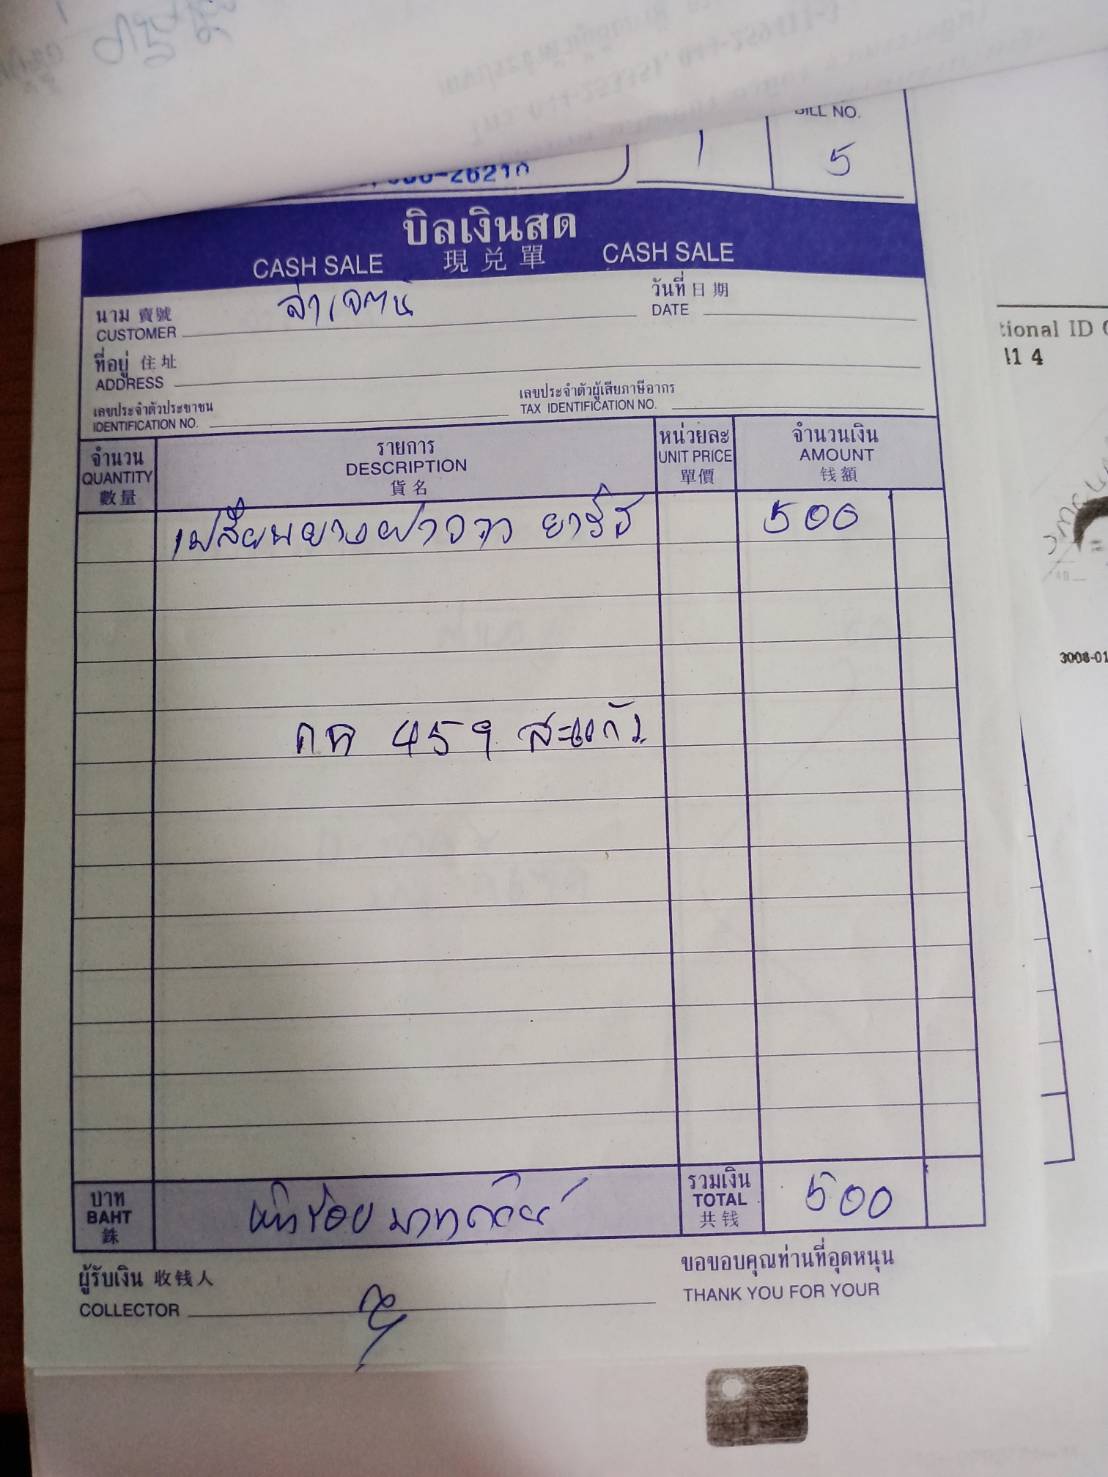 BILL NO.
1 5
บิลเงินสด
CASH SALE 現兌單 CASH SALE
นาม 賣號
CUSTOMER
วันที่ 日期
DATE
ที่อยู่ 住址
ADDRESS
เลขประจำตัวประชาชน
IDENTIFICATION NO.
เลขประจำตัวผู้เสียภาษีอากร
TAX IDENTIFICATION NO.
จำนวน
QUANTITY
數量
รายการ
DESCRIPTION
貨名
หน่วยละ
UNIT PRICE
單價
จำนวนเงิน
AMOUNT
钱額
เปลี่ยนยาง ยาริส 500
กต 459 สระแก้ว
บาท
BAHT
銖
ห้าร้อยบาทถ้วน
รวมเงิน
TOTAL
共钱
500
ผู้รับเงิน 收钱人
COLLECTOR
ขอขอบคุณท่านที่อุดหนุน
THANK YOU FOR YOUR
tional ID
11 4
3008-01